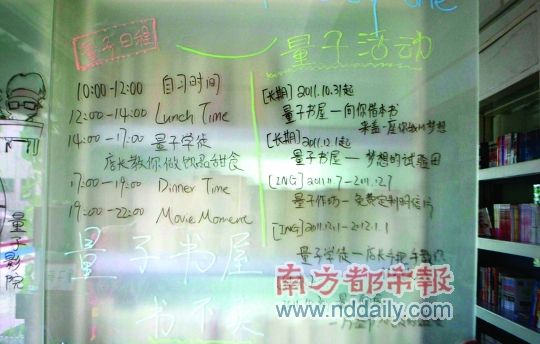 量子日程
10:00-12:00 自习时间
12:00-14:00 Lunch Time
14:00-17:00 量子学徒
店长教你做饮品甜食
17:00-19:00 Dinner Time
19:00-22:00 Movie Moment
量子书屋
书不失
量子影院
量子活动
[长期] 2011.10.31起
量子书屋—向你借本书
来盖一座你我的梦想
[长期] 2011.12.1起
量子书屋—梦想的试验田
[ING] 2011.11.7-2011.12.7
量子作坊—免费定制明信片
[ING] 2011.12.1-2012.1.1
量子学徒—店长手把手教你
南方都市报
www.nddaily.com